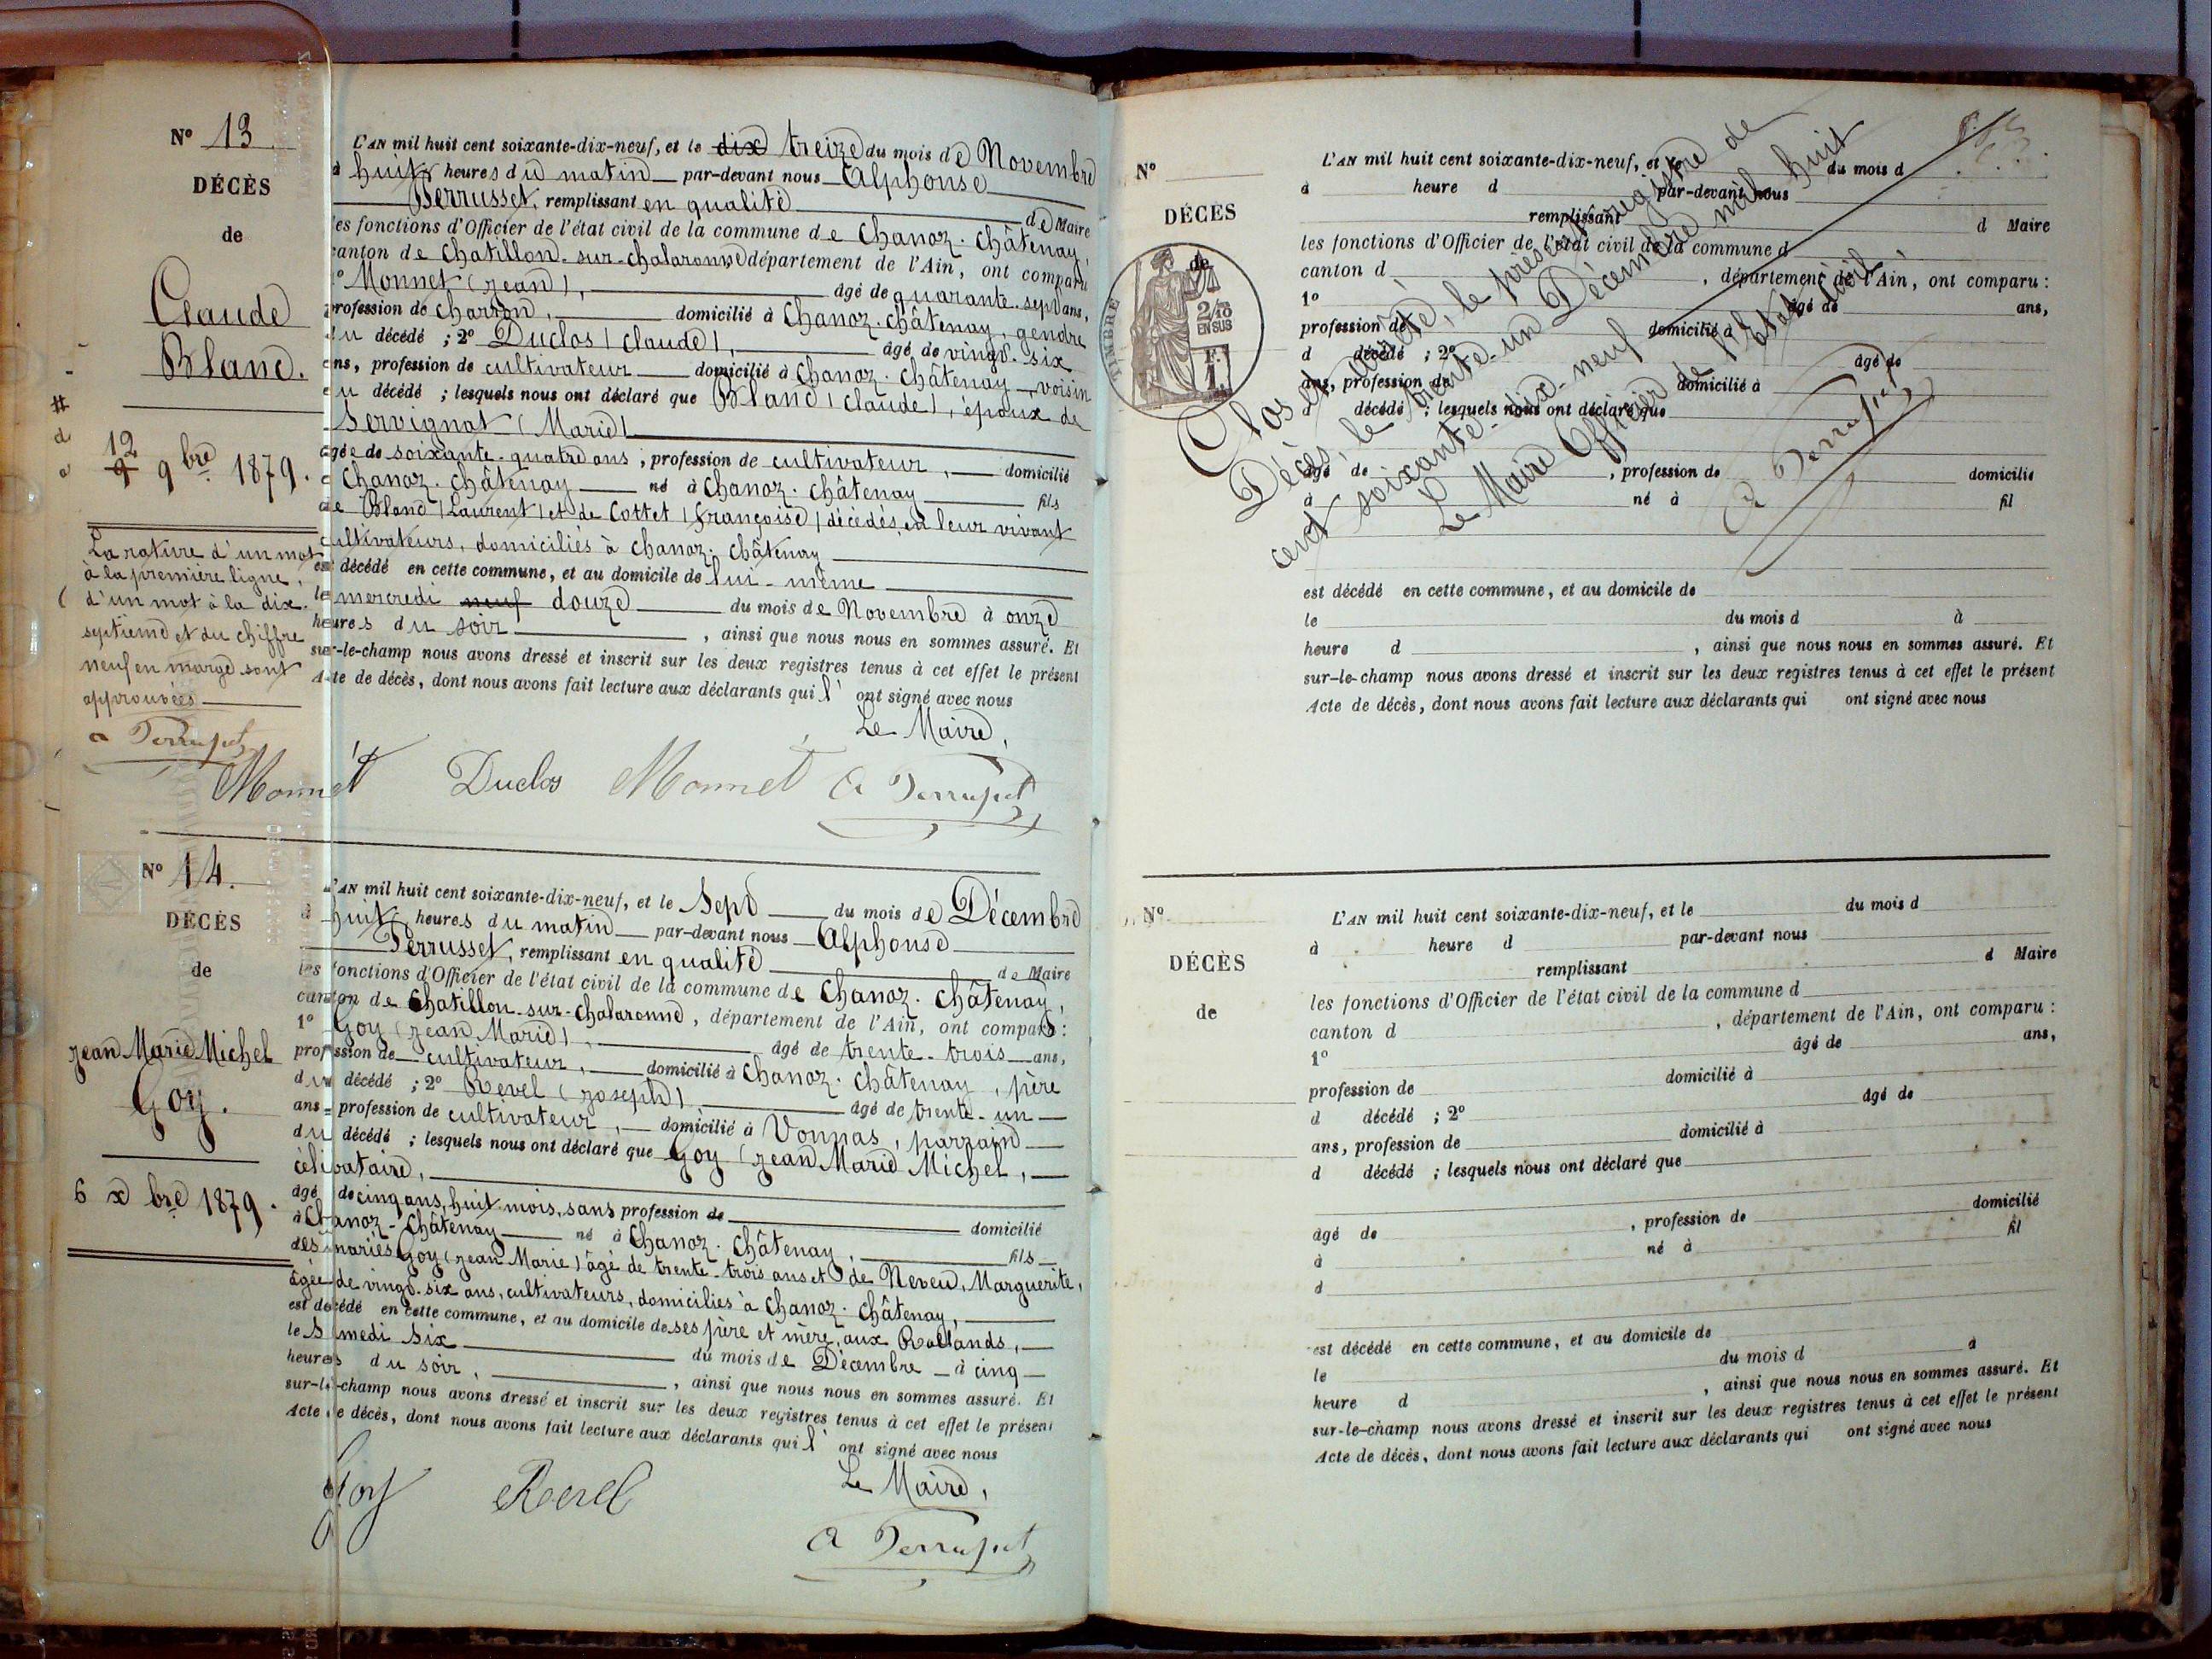 N° 13
DÉCÈS
de
Claude
Bland.
12
9 9bre 1879.
La rature d'un mot
à la première ligne,
d'un mot à la dix-
septième et du chiffre
neuf en marge sont
approuvées
a Perrusset
L'AN mil huit cent soixante-dix-neuf, et le dix treize du mois de Novembre
à huit heures du matin par-devant nous Alphonse
Perrusset, remplissant en qualité de Maire
les fonctions d'Officier de l'état civil de la commune de Chanoz-Châtenay,
canton de Chatillon-sur-Chalaronne département de l'Ain, ont comparu
1° Monnet (Jean), âgé de quarante-sept ans,
profession de charron, domicilié à Chanoz-Châtenay, gendre
du décédé ; 2° Duclos (Claude), âgé de vingt-six
ans, profession de cultivateur domicilié à Chanoz-Châtenay voisin
du décédé ; lesquels nous ont déclaré que Bland (Claude), époux de
Servignat (Marie)
âgé de soixante-quatre ans, profession de cultivateur, domicilié
à Chanoz-Châtenay né à Chanoz-Châtenay fils
de Bland (Laurent) et de Cottet (Françoise) décédés, en leur vivant
cultivateurs, domiciliés à Chanoz-Châtenay
est décédé en cette commune, et au domicile de lui-même
le mercredi neuf douze du mois de Novembre à onze
heures du soir, ainsi que nous nous en sommes assuré. Et
sur-le-champ nous avons dressé et inscrit sur les deux registres tenus à cet effet le présent
Acte de décès, dont nous avons fait lecture aux déclarants qui l' ont signé avec nous
Le Maire,
Monnet Duclos Monnet a Perrusset
N° 14.
DÉCÈS
de
Jean Marie Michel
Goy.
6 xbre 1879.
L'AN mil huit cent soixante-dix-neuf, et le Sept du mois de Décembre
à huit heures du matin par-devant nous Alphonse
Perrusset, remplissant en qualité de Maire
les fonctions d'Officier de l'état civil de la commune de Chanoz-Châtenay,
canton de Chatillon-sur-Chalaronne, département de l'Ain, ont comparu :
1° Goy (Jean Marie), âgé de trente-trois ans,
profession de cultivateur, domicilié à Chanoz-Châtenay, père
du décédé ; 2° Revel (Joseph) âgé de trente-un
ans, profession de cultivateur, domicilié à Vonnas, parrain
du décédé ; lesquels nous ont déclaré que Goy (Jean Marie Michel,
célibataire,
âgé de cinq ans, huit mois, sans profession de domicilié
à Chanoz-Châtenay né à Chanoz-Châtenay, fils
des mariés Goy (Jean Marie) âgé de trente-trois ans et de Neveu, Marguerite,
âgée de vingt-six ans, cultivateurs, domiciliés à Chanoz-Châtenay,
est décédé en cette commune, et au domicile de ses père et mère, aux Rollands,
le Samedi six du mois de Décembre à cinq
heures du soir, ainsi que nous nous en sommes assuré. Et
sur-le-champ nous avons dressé et inscrit sur les deux registres tenus à cet effet le présent
Acte de décès, dont nous avons fait lecture aux déclarants qui l' ont signé avec nous
Le Maire,
Goy Revel
a Perrusset
N°
DÉCÈS
de
TIMBRE
2/10
EN SUS
L'AN mil huit cent soixante-dix-neuf, et le du mois d
à heure d par-devant nous
remplissant d Maire
les fonctions d'Officier de l'état civil de la commune d
canton d , département de l'Ain, ont comparu :
1° âgé de ans,
profession de domicilié à
d décédé ; 2° âgé de
ans, profession de domicilié à
d décédé ; lesquels nous ont déclaré que
âgé de , profession de domicilié
à né à fil
est décédé en cette commune, et au domicile de
le du mois d à
heure d , ainsi que nous nous en sommes assuré. Et
sur-le-champ nous avons dressé et inscrit sur les deux registres tenus à cet effet le présent
Acte de décès, dont nous avons fait lecture aux déclarants qui ont signé avec nous
Clos et arrêté, le présent registre de
Décès, le trente-un Décembre mil huit
cent soixante-dix-neuf
Le Maire Officier de l'Etat civil
a Perrusset
N°
DÉCÈS
de
L'AN mil huit cent soixante-dix-neuf, et le du mois d
à heure d par-devant nous
remplissant d Maire
les fonctions d'Officier de l'état civil de la commune d
canton d , département de l'Ain, ont comparu :
1° âgé de ans,
profession de domicilié à
d décédé ; 2° âgé de
ans, profession de domicilié à
d décédé ; lesquels nous ont déclaré que
âgé de , profession de domicilié
à né à fil
d
est décédé en cette commune, et au domicile de
le du mois d à
heure d , ainsi que nous nous en sommes assuré. Et
sur-le-champ nous avons dressé et inscrit sur les deux registres tenus à cet effet le présent
Acte de décès, dont nous avons fait lecture aux déclarants qui ont signé avec nous